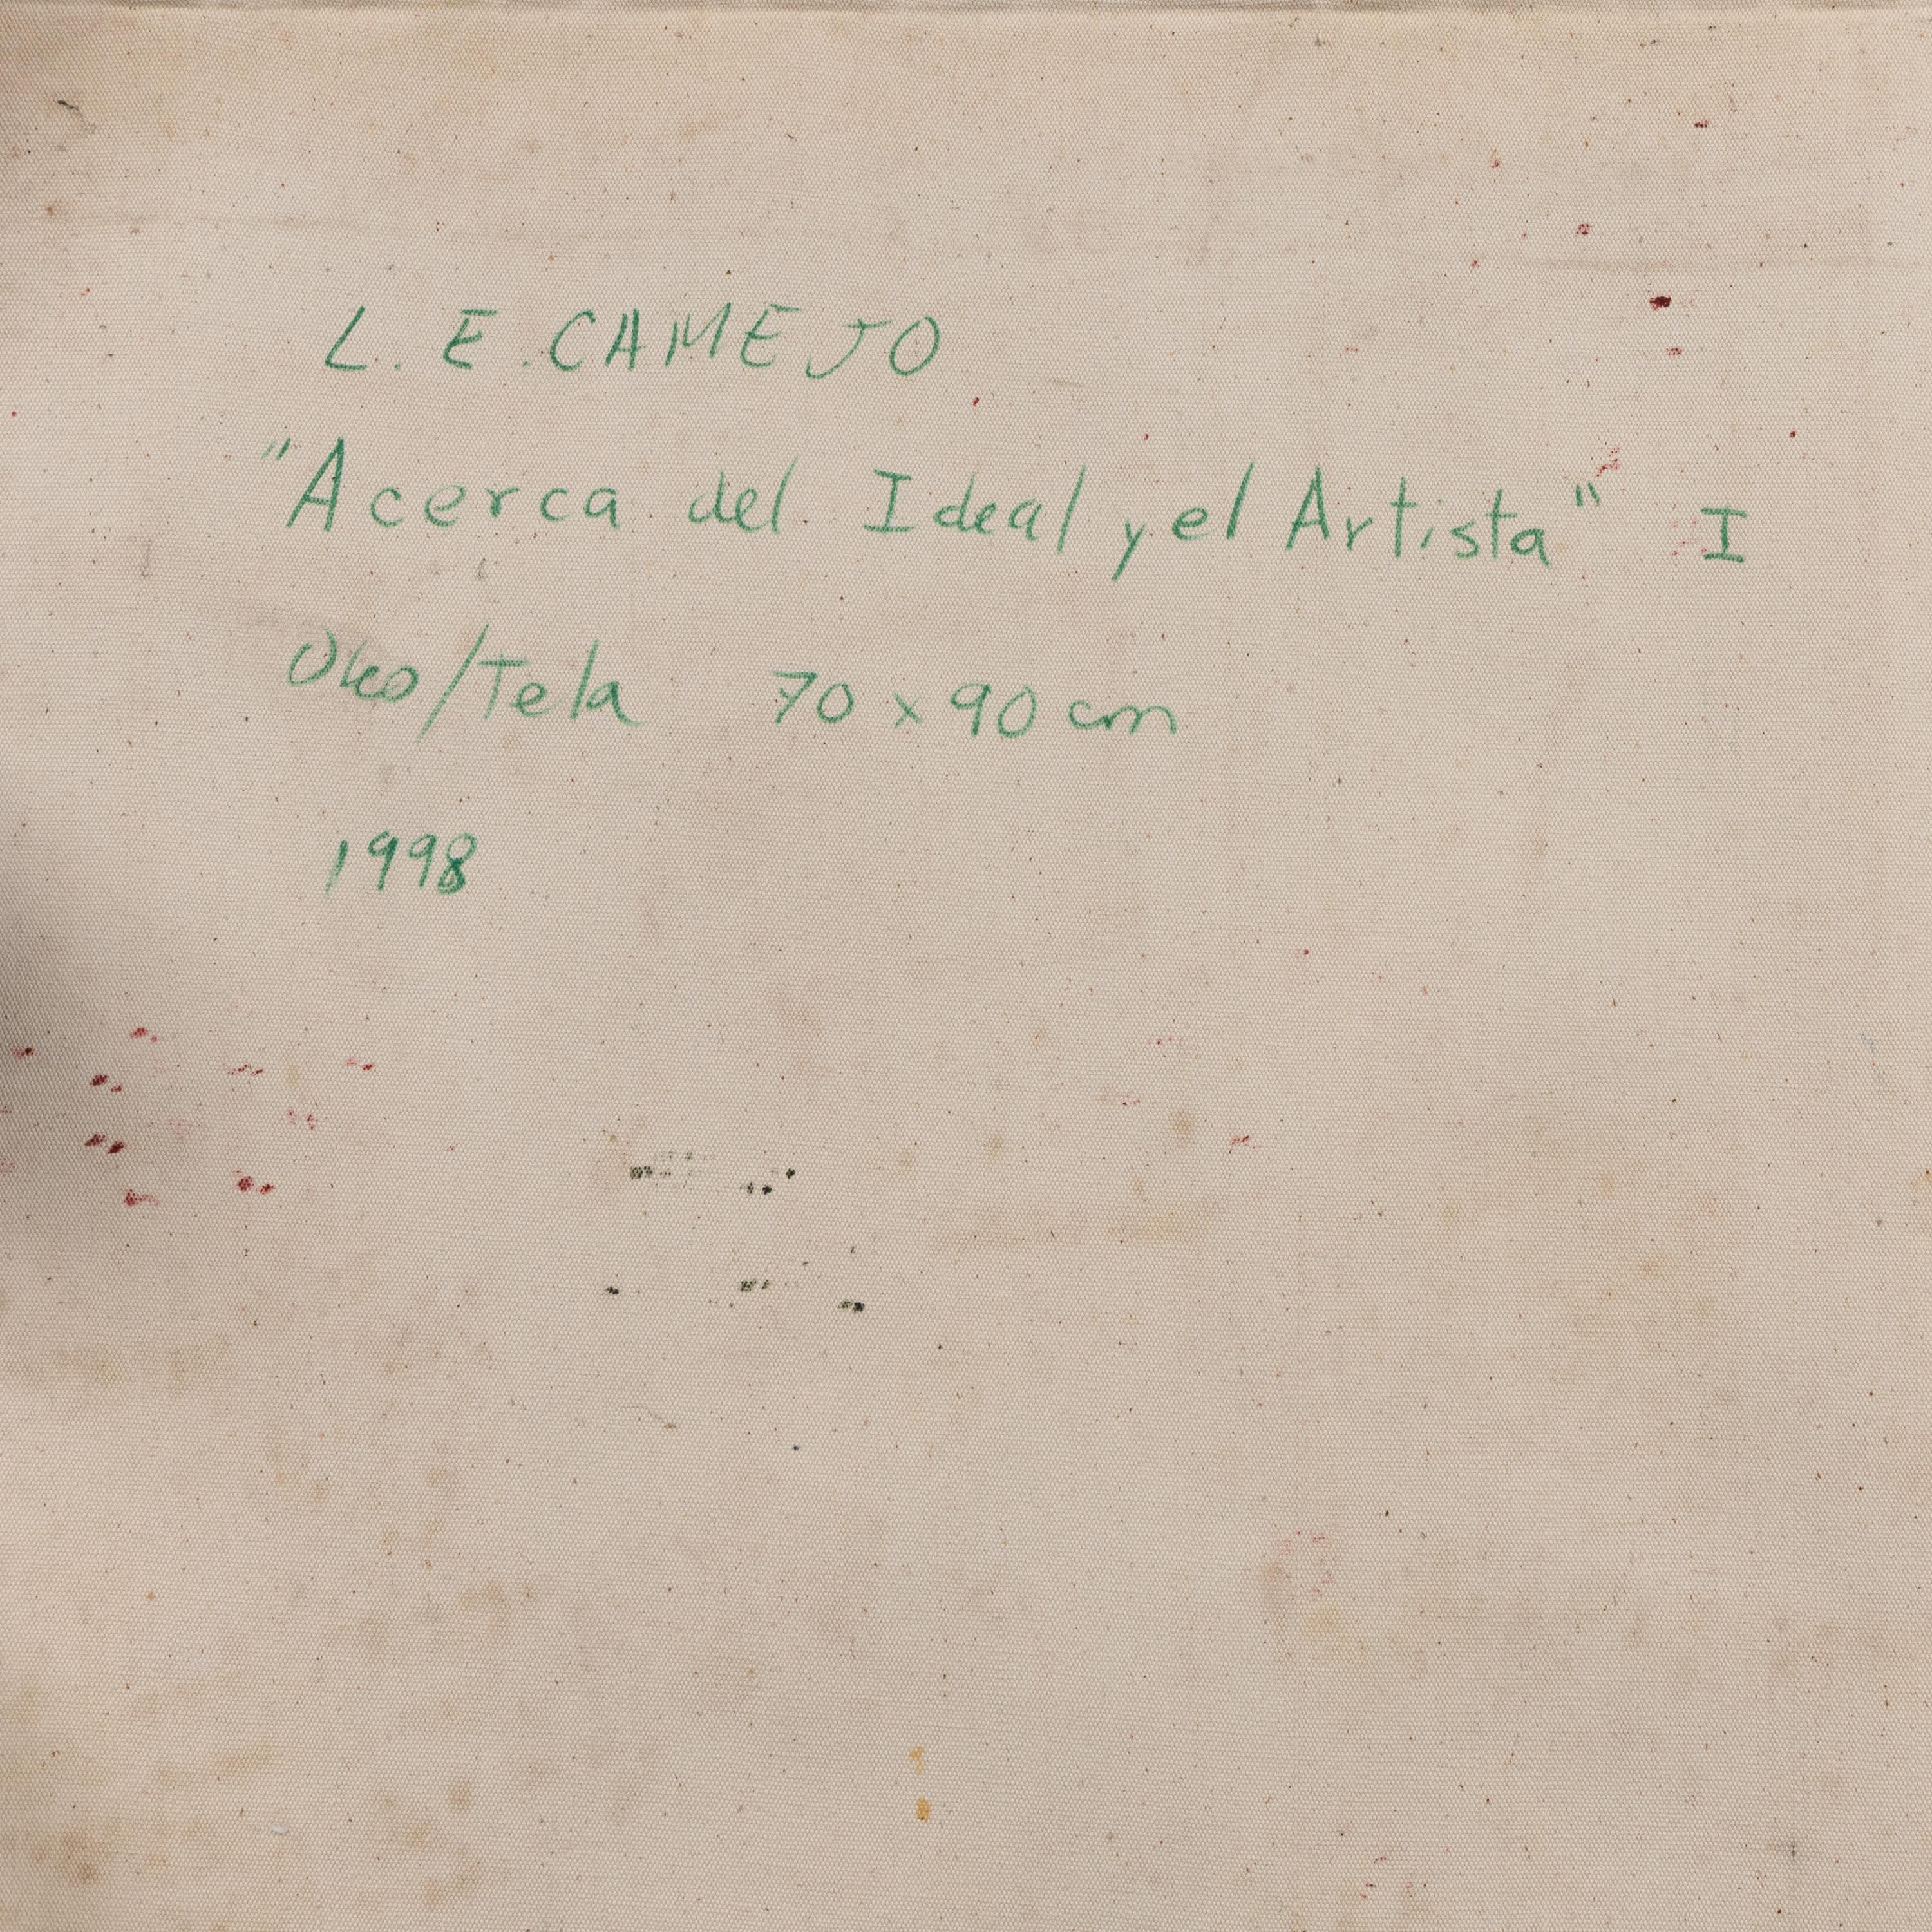 L. E. CAMEJO
"Acerca del Ideal y el Artista" I
Oleo/Tela 70 x 90 cm
1998